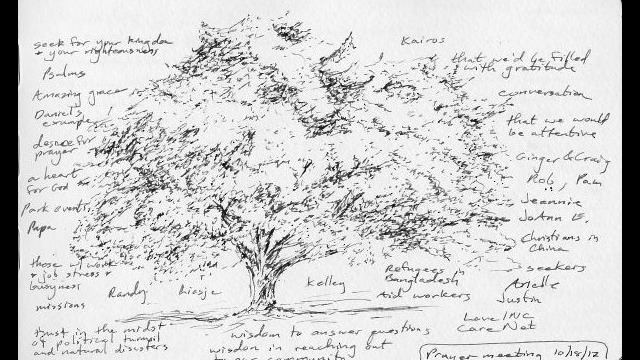 seek for your kingdom
& your righteousness
Psalms
Amazing grace
Daniel's
example
desire for
prayer
a heart
for God
Park events
Papa
those w/ work
& job stress &
busyness
missions
trust in the midst
of political turmoil
and natural disasters
Randy
Liesje
Kelley
wisdom to answer questions
wisdom in reaching out
to our community
Kairos
that we'd be filled
with gratitude
conversation
that we would
be attentive
Ginger & Craig
Rob, Pam
Jeannie
JoAnn E.
Christians in
China
seekers
Refugees in
Bangladesh
Aid workers
Arielle
Justin
Love INC
Care Net
Prayer meeting 10/18/12